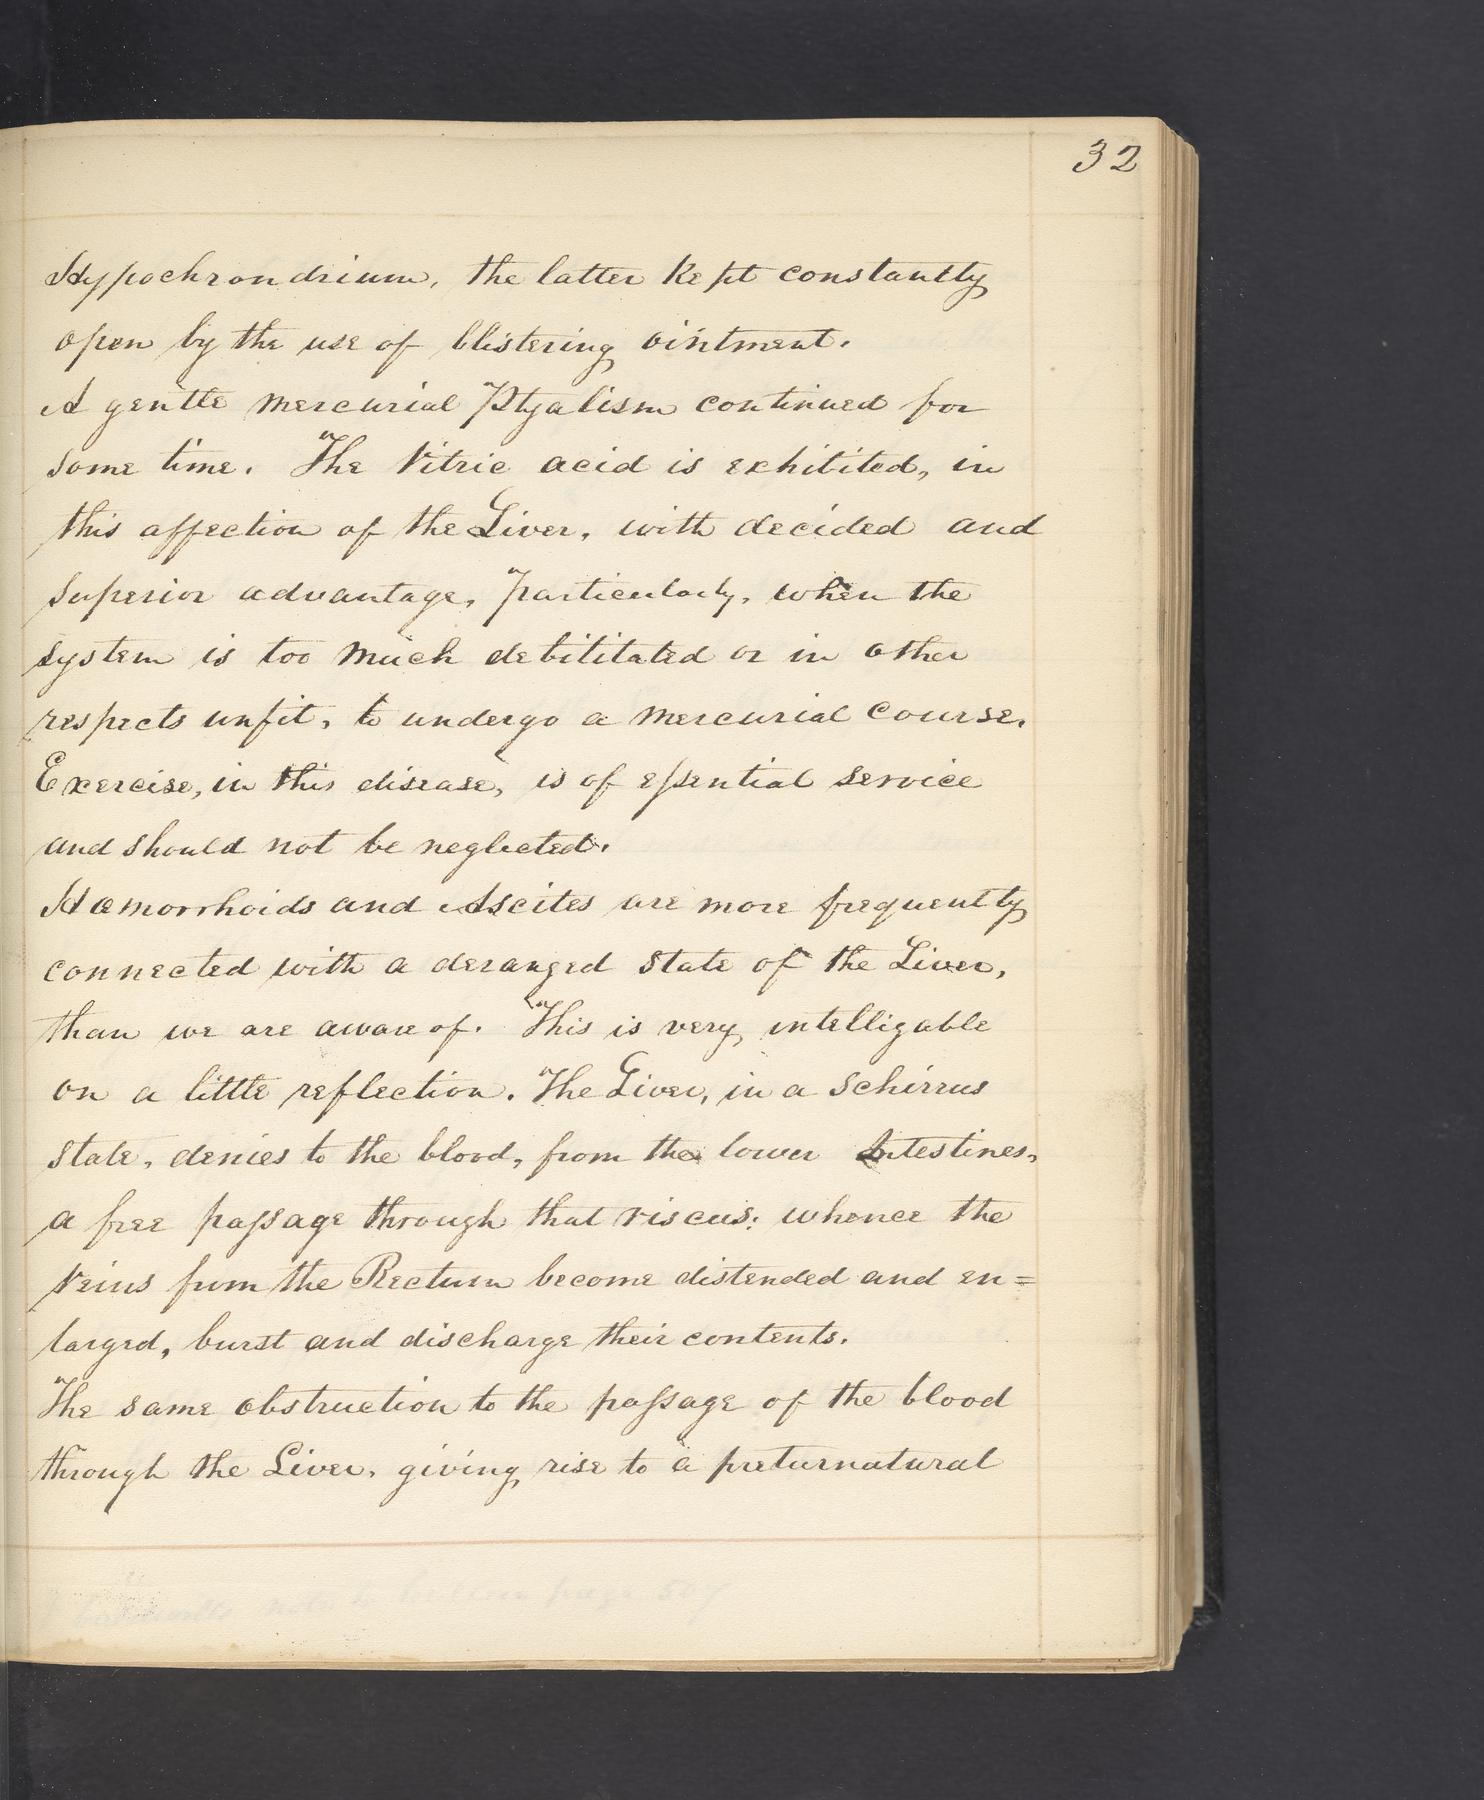 32
Hypochrondrium, the latter kept constantly
open by the use of blistering ointment.
A gentle mercurial Ptyalism continued for
some time. The Nitric acid is exhibited, in
this affection of the Liver, with decided and
superior advantage, particularly, when the
system is too much debilitated or in other
respects unfit, to undergo a mercurial course.
Exercise, in this disease, is of essential service
and should not be neglected.
Hæmorrhoids and Ascites are more frequently
connected with a deranged state of the Liver,
than we are aware of. This is very intelligable
on a little reflection. The Liver, in a schirrus
state, denies to the blood, from the lower Intestines,
a free passage through that viscus: whence the
veins from the Rectum become distended and en=
larged, burst and discharge their contents.
The same obstruction to the passage of the blood
through the Liver, giving rise to a preturnatural